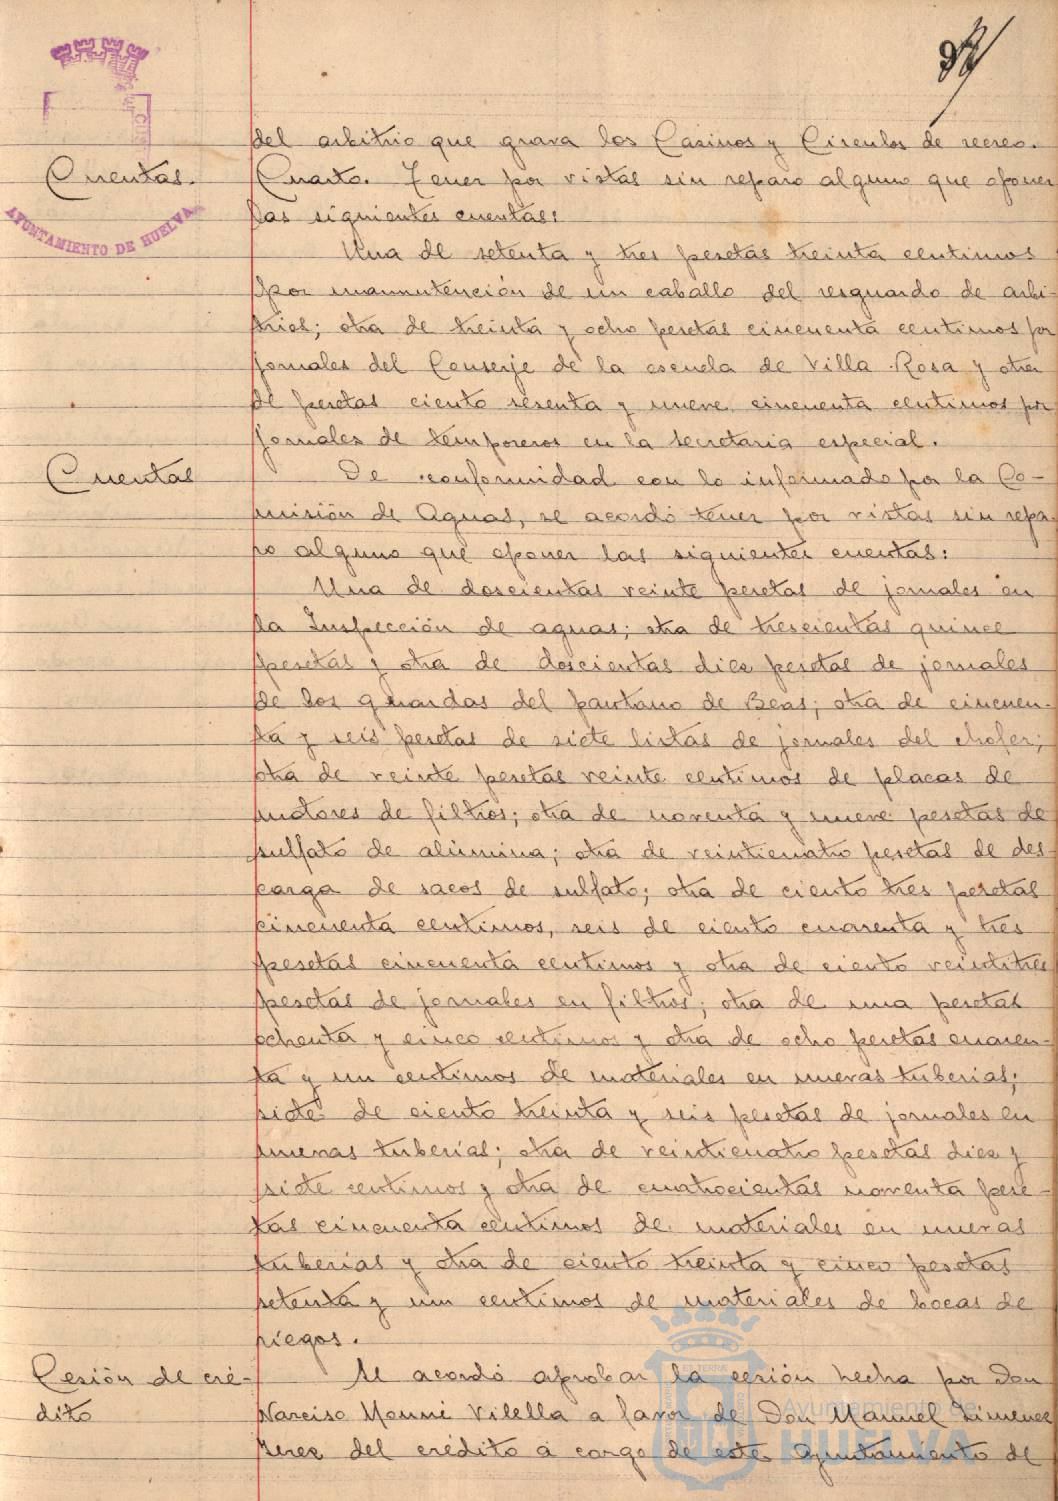 del arbitrio que grava los Casinos y Circulos de recreo.
Cuentas.
Cuarto. Tener por vistas sin reparo alguno que oponer
las siguientes cuentas:
AYUNTAMIENTO DE HUELVA
Una de setenta y tres pesetas treinta centimos
por manutención de un caballo del resguardo de arbi-
trios; otra de treinta y ocho pesetas cincuenta centimos por
jornales del Conserje de la escuela de Villa Rosa y otra
de pesetas ciento sesenta y nueve cincuenta centimos por
jornales de temporeros en la secretaria especial.
Cuentas
De conformidad con lo informado por la Co-
misión de Aguas, se acordó tener por vistas sin repa-
ro alguno que oponer las siguientes cuentas:
Una de doscientas veinte pesetas de jornales en
la Inspección de aguas; otra de trescientas quince
pesetas y otra de doscientas diez pesetas de jornales
de los guardas del pantano de Beas; otra de cincuen-
ta y seis pesetas de siete listas de jornales del chofer;
otra de veinte pesetas veinte centimos de placas de
motores de filtros; otra de noventa y nueve pesetas de
sulfato de alúmina; otra de veinticuatro pesetas de des-
carga de sacos de sulfato; otra de ciento tres pesetas
cincuenta centimos, seis de ciento cuarenta y tres
pesetas cincuenta centimos y otra de ciento veintitres
pesetas de jornales en filtros; otra de una peseta
ochenta y cinco centimos y otra de ocho pesetas cuaren-
ta y un centimos de materiales en nuevas tuberias;
siete de ciento treinta y seis pesetas de jornales en
nuevas tuberias; otra de veinticuatro pesetas diez y
siete centimos y otra de cuatrocientas noventa pese-
tas cincuenta centimos de materiales en nuevas
tuberias y otra de ciento treinta y cinco pesetas
setenta y un centimos de materiales de bocas de
riegos.
Cesión de cré-
dito
Se acordó aprobar la cesión hecha por Don
Narciso Monni Vilella a favor de Don Manuel Jimenez
Jerez del crédito á cargo de este Ayuntamiento de
Ayuntamiento de
HUELVA